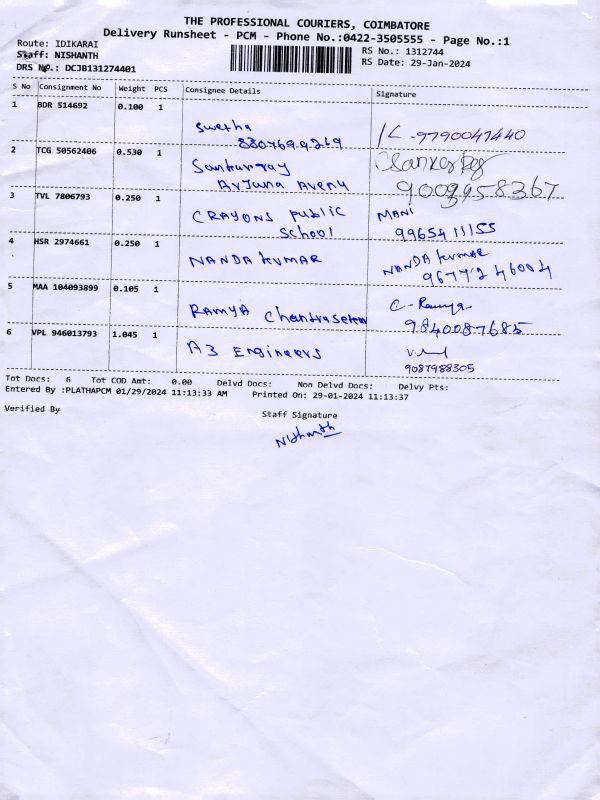 THE PROFESSIONAL COURIERS, COIMBATORE
Delivery Runsheet - PCM - Phone No.:0422-3505555 - Page No.:1
Route: IDIKARAI
RS No.: 1312744
Staff: NISHANTH
RS Date: 29-Jan-2024
DRS No.: DCJB131274401
S No Consignment No Weight PCS Consignee Details Signature
1 BDR 514692 0.100 1
Swetha
9790047440
2 TCG 50562406 0.530 1
Arjuna Aveny
3 TVL 7806793 0.250 1
CRAYONS Public MANI
School 9965411155
4 HSR 2974661 0.250 1
NANDA kumar NANDA kumar
5 MAA 104093899 0.105 1
RAMYA Chandrasekar C. Ramya
9840087685
6 VPL 946013793 1.045 1
A3 Engineers
9087988305
Tot Docs: 6 Tot COD Amt: 0.00 Delvd Docs: Non Delvd Docs: Delvy Pts:
Entered By :PLATHAPCM 01/29/2024 11:13:33 AM Printed On: 29-01-2024 11:13:37
Verified By
Staff Signature
Nishanth